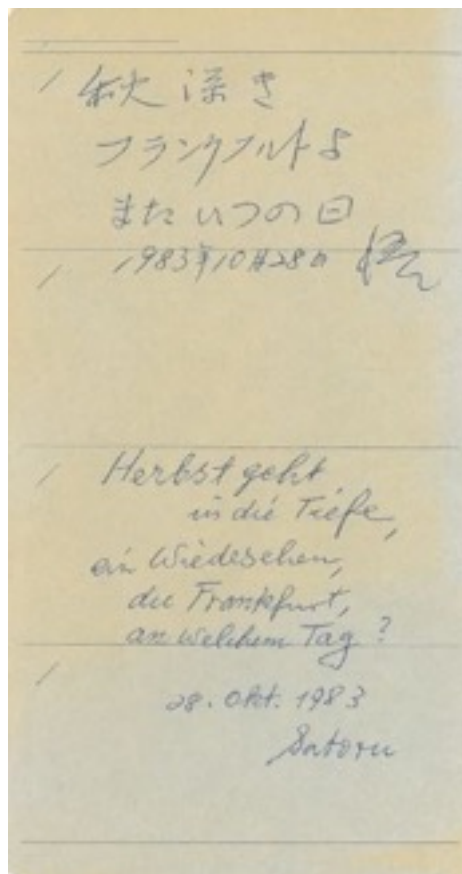 秋深き
フランクフルトよ
またいつの日
1983年10月28日 悟
Herbst geht
in die Tiefe,
ein Wiedesehen,
du Frankfurt,
an welchem Tag?
28. Okt. 1983
Satoru